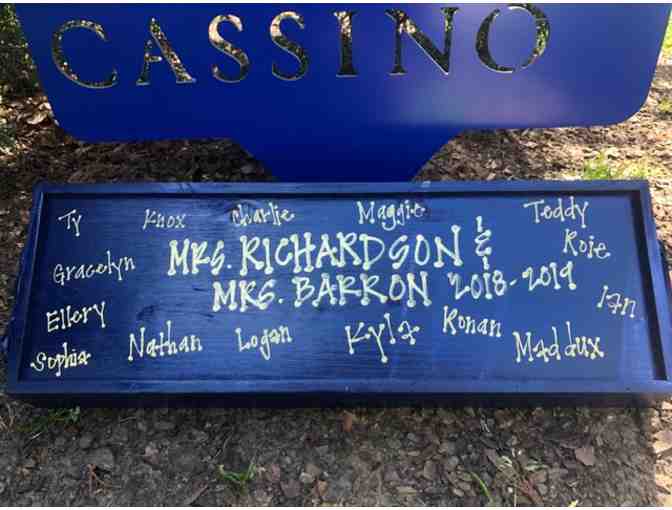 CASSINO
Ty Knox Charlie Maggie Teddy
Gracelyn MRS. RICHARDSON & Roie
MRS. BARRON 2018-2019
Ellery Ian
Sophia Nathan Logan Kyla Ronan Maddux